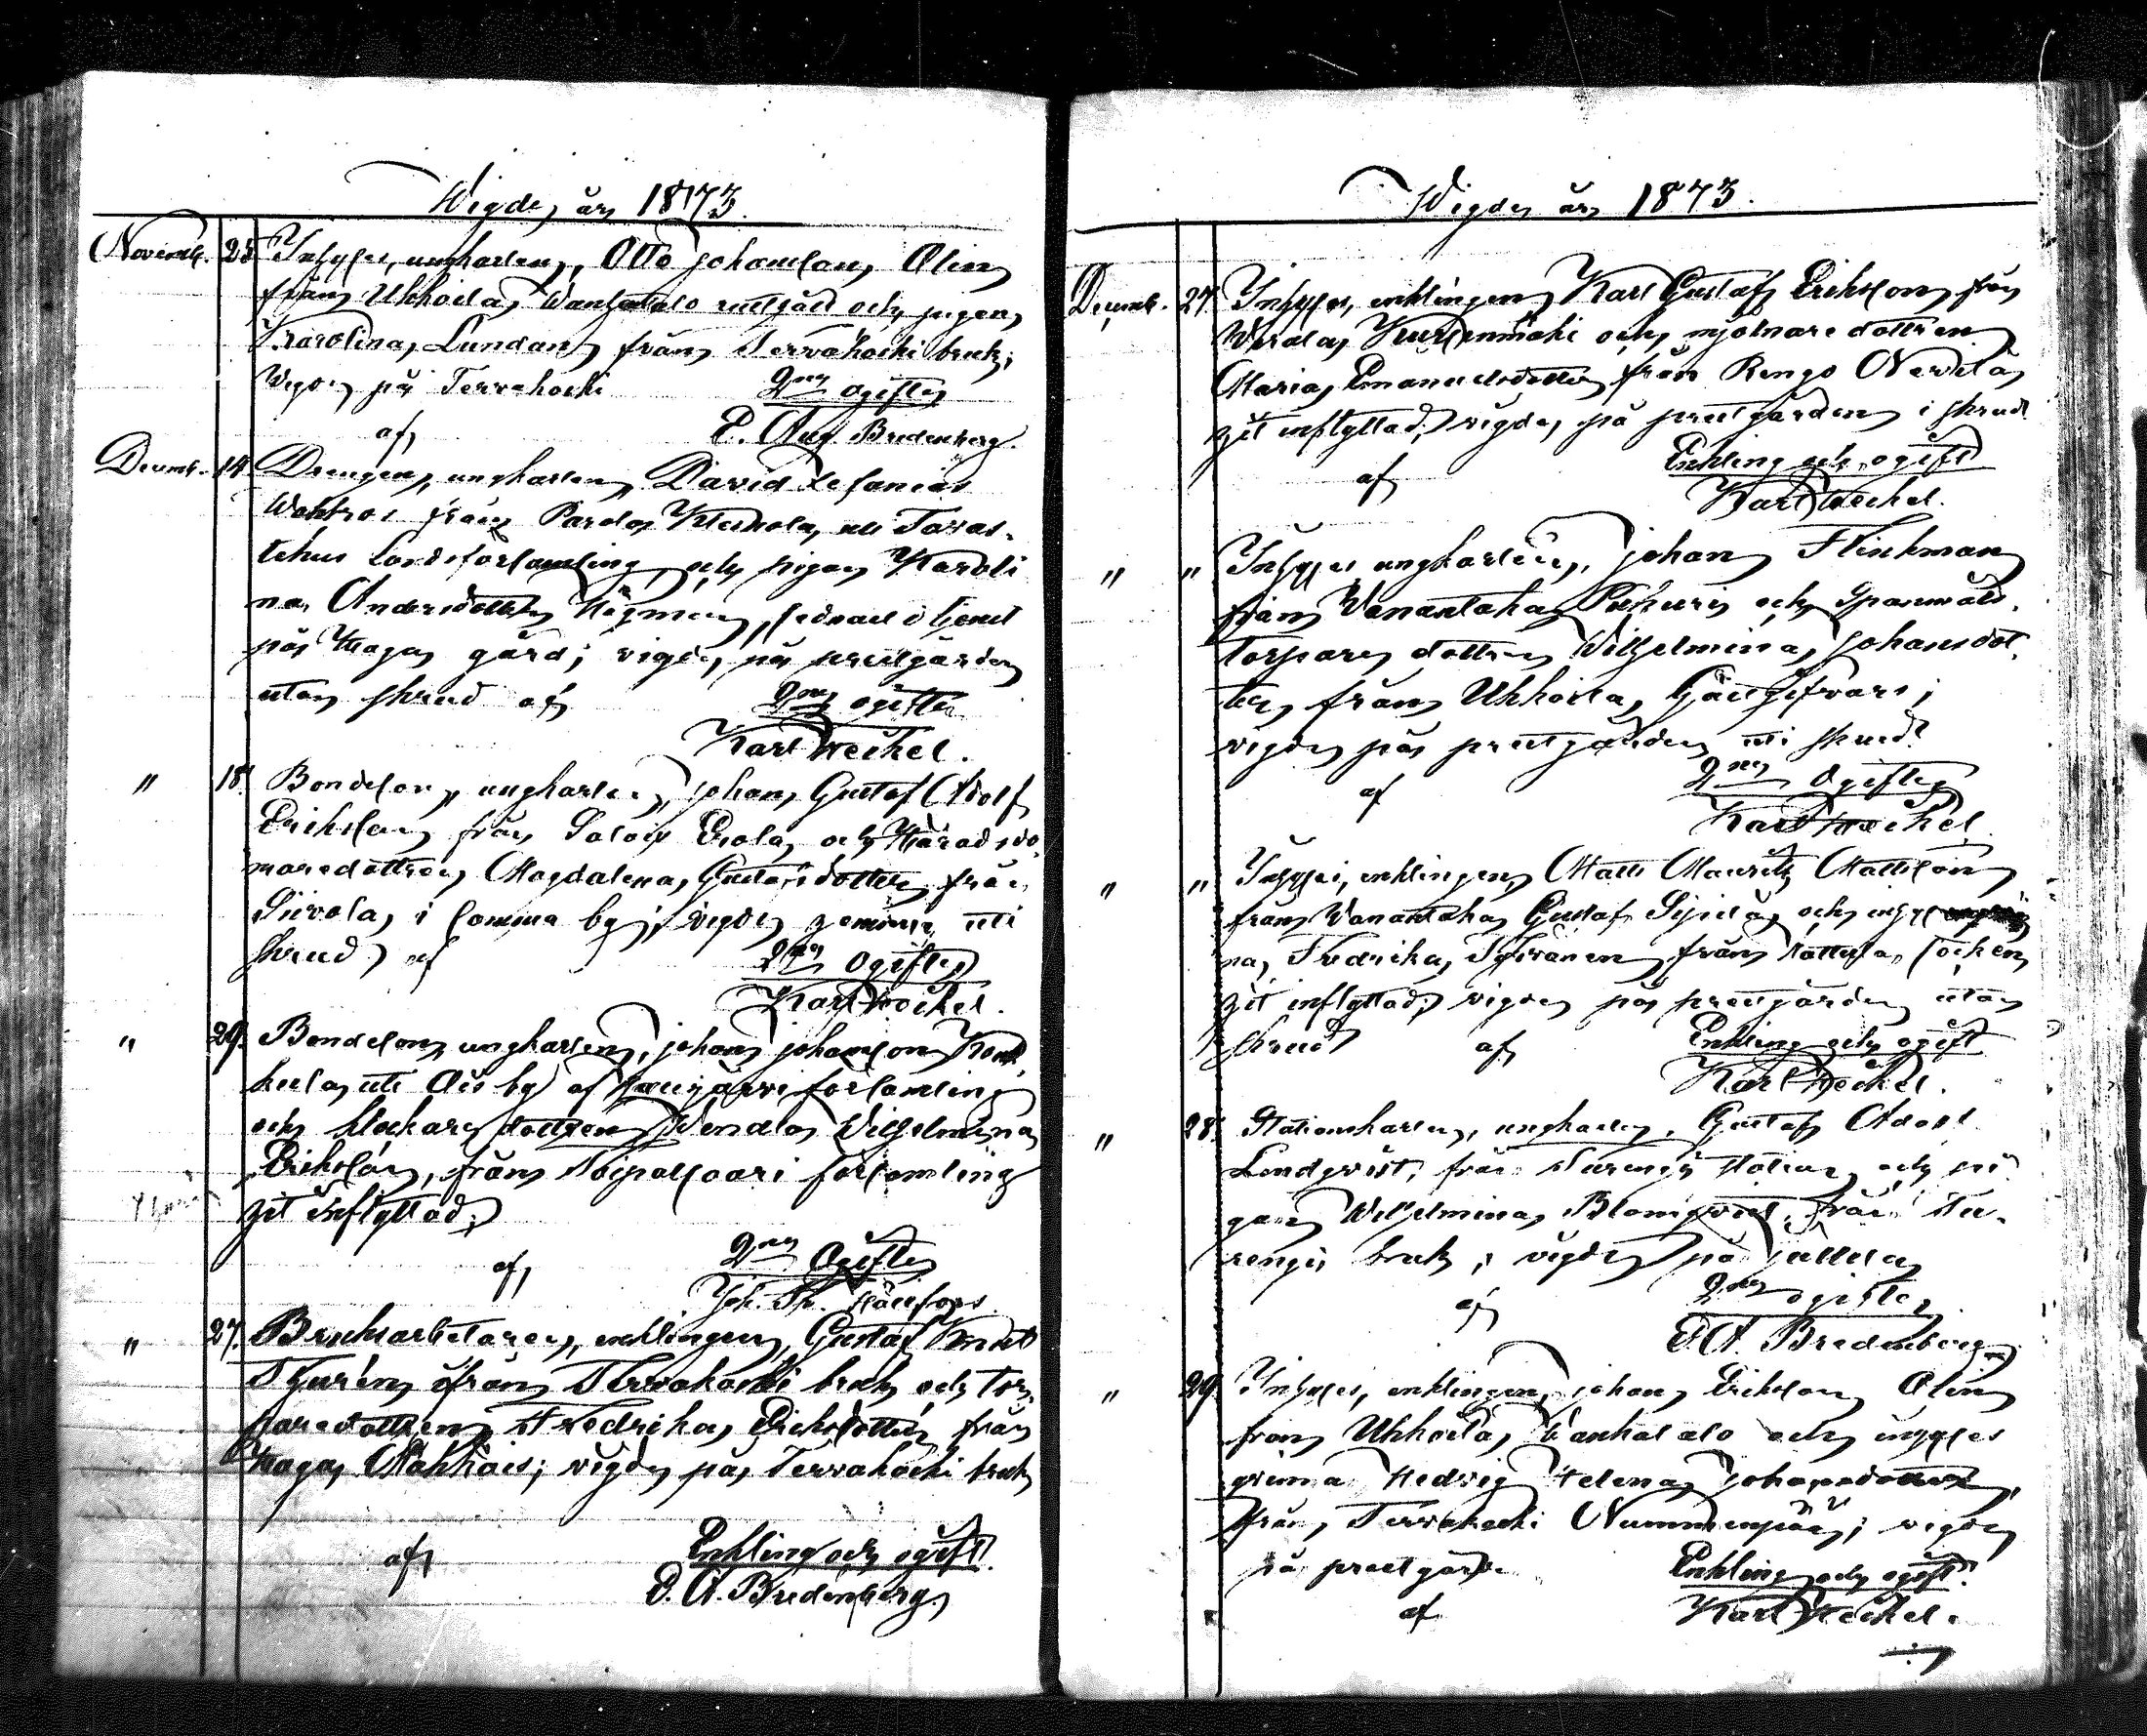 Wigde år 1873.
Novemb. 23. Inhyses, ungkarlen, Otto Johansson Olin
från Uhkoila, Wanhatalo och pigan
Karolina Lundan från Terwakoski bruk;
Wigde på Terwakoski 2ne ogifta
af E. Aug. Bredenberg.
Decemb. 14. Drengen, ungkarlen, David Sefanias
från Parola, uti Tavas-
tehus Landsförsamling, och pigan Karoli
na Andersdotter Hägman,
på Haga gård; vigde på prestgården
utan skrud af 2ne ogifta
Karl Heikel.
" 18. Bondeson, ungkarlen, Johan Gustaf Adolf
Eriksson från Salois Erola och Häradsdo-
maredottren Magdalena Gustafsdotter från
Siivola i samma by; vigde hemma uti
skrud af 2ne Ogifta
Karl Heikel.
" 29. Bondeson, ungkarlen, Johan Johansson
uti Ois by af Hausjärvi församling
och klockaredottren Wendla Wilhelmina
Eriksson, från församling
hit inflyttad;
af 2ne Ogifta
Joh. Th. Hällfors.
" 27. Bruksarbetaren, enklingen, Gustaf Knut
Thurén från Terwakoski bruk och tor-
paredottren Fredrika Eriksdotter från
Haga; vigde på Terwakoski bruk
af Enkling och ogift.
E. A. Bredenberg.
Wigde år 1873.
Decemb. 27. Inhyses, enklingen Karl Gustaf Eriksson från
och mjölnaredottren
Maria Emanuelsdotter från Rengo
hit inflyttad; vigde på prestgården i skrud
af Enkling och ogift
Karl Heikel.
" " Inhyses ungkarlen, Johan Flinkman
från Wanantaka och Spanmåls-
torpare dottren Wilhelmina Johansdot-
ter från Uhkoila;
vigde på prestgården uti skrud
af 2ne Ogifta
Karl Heikel
" " Inhyses, enklingen, Matts Mauritz Mattsson
från Wanantaka Gustaf och
Fredrika från socken
hit inflyttad; vigde på prestgården utan
skrud af Enkling och ogift
Karl Heikel.
" 28. Stationskarlen, ungkarlen, Gustaf Adolf
Lindqvist, från Turengi station och pi-
gan Wilhelmina Blomqvist från Tu-
rengi bruk; vigde på
af 2ne ogifta
E. A. Bredenberg
" 29. Inhyses, enklingen, Johan Eriksson Olin
från Uhkoila, Wanhatalo och inhyses
qvinna Hedvig Helena Johansdotter
från Terwakoski Nummenpää; vigde
på prestgården Enkling och ogift.
af Karl Heikel.